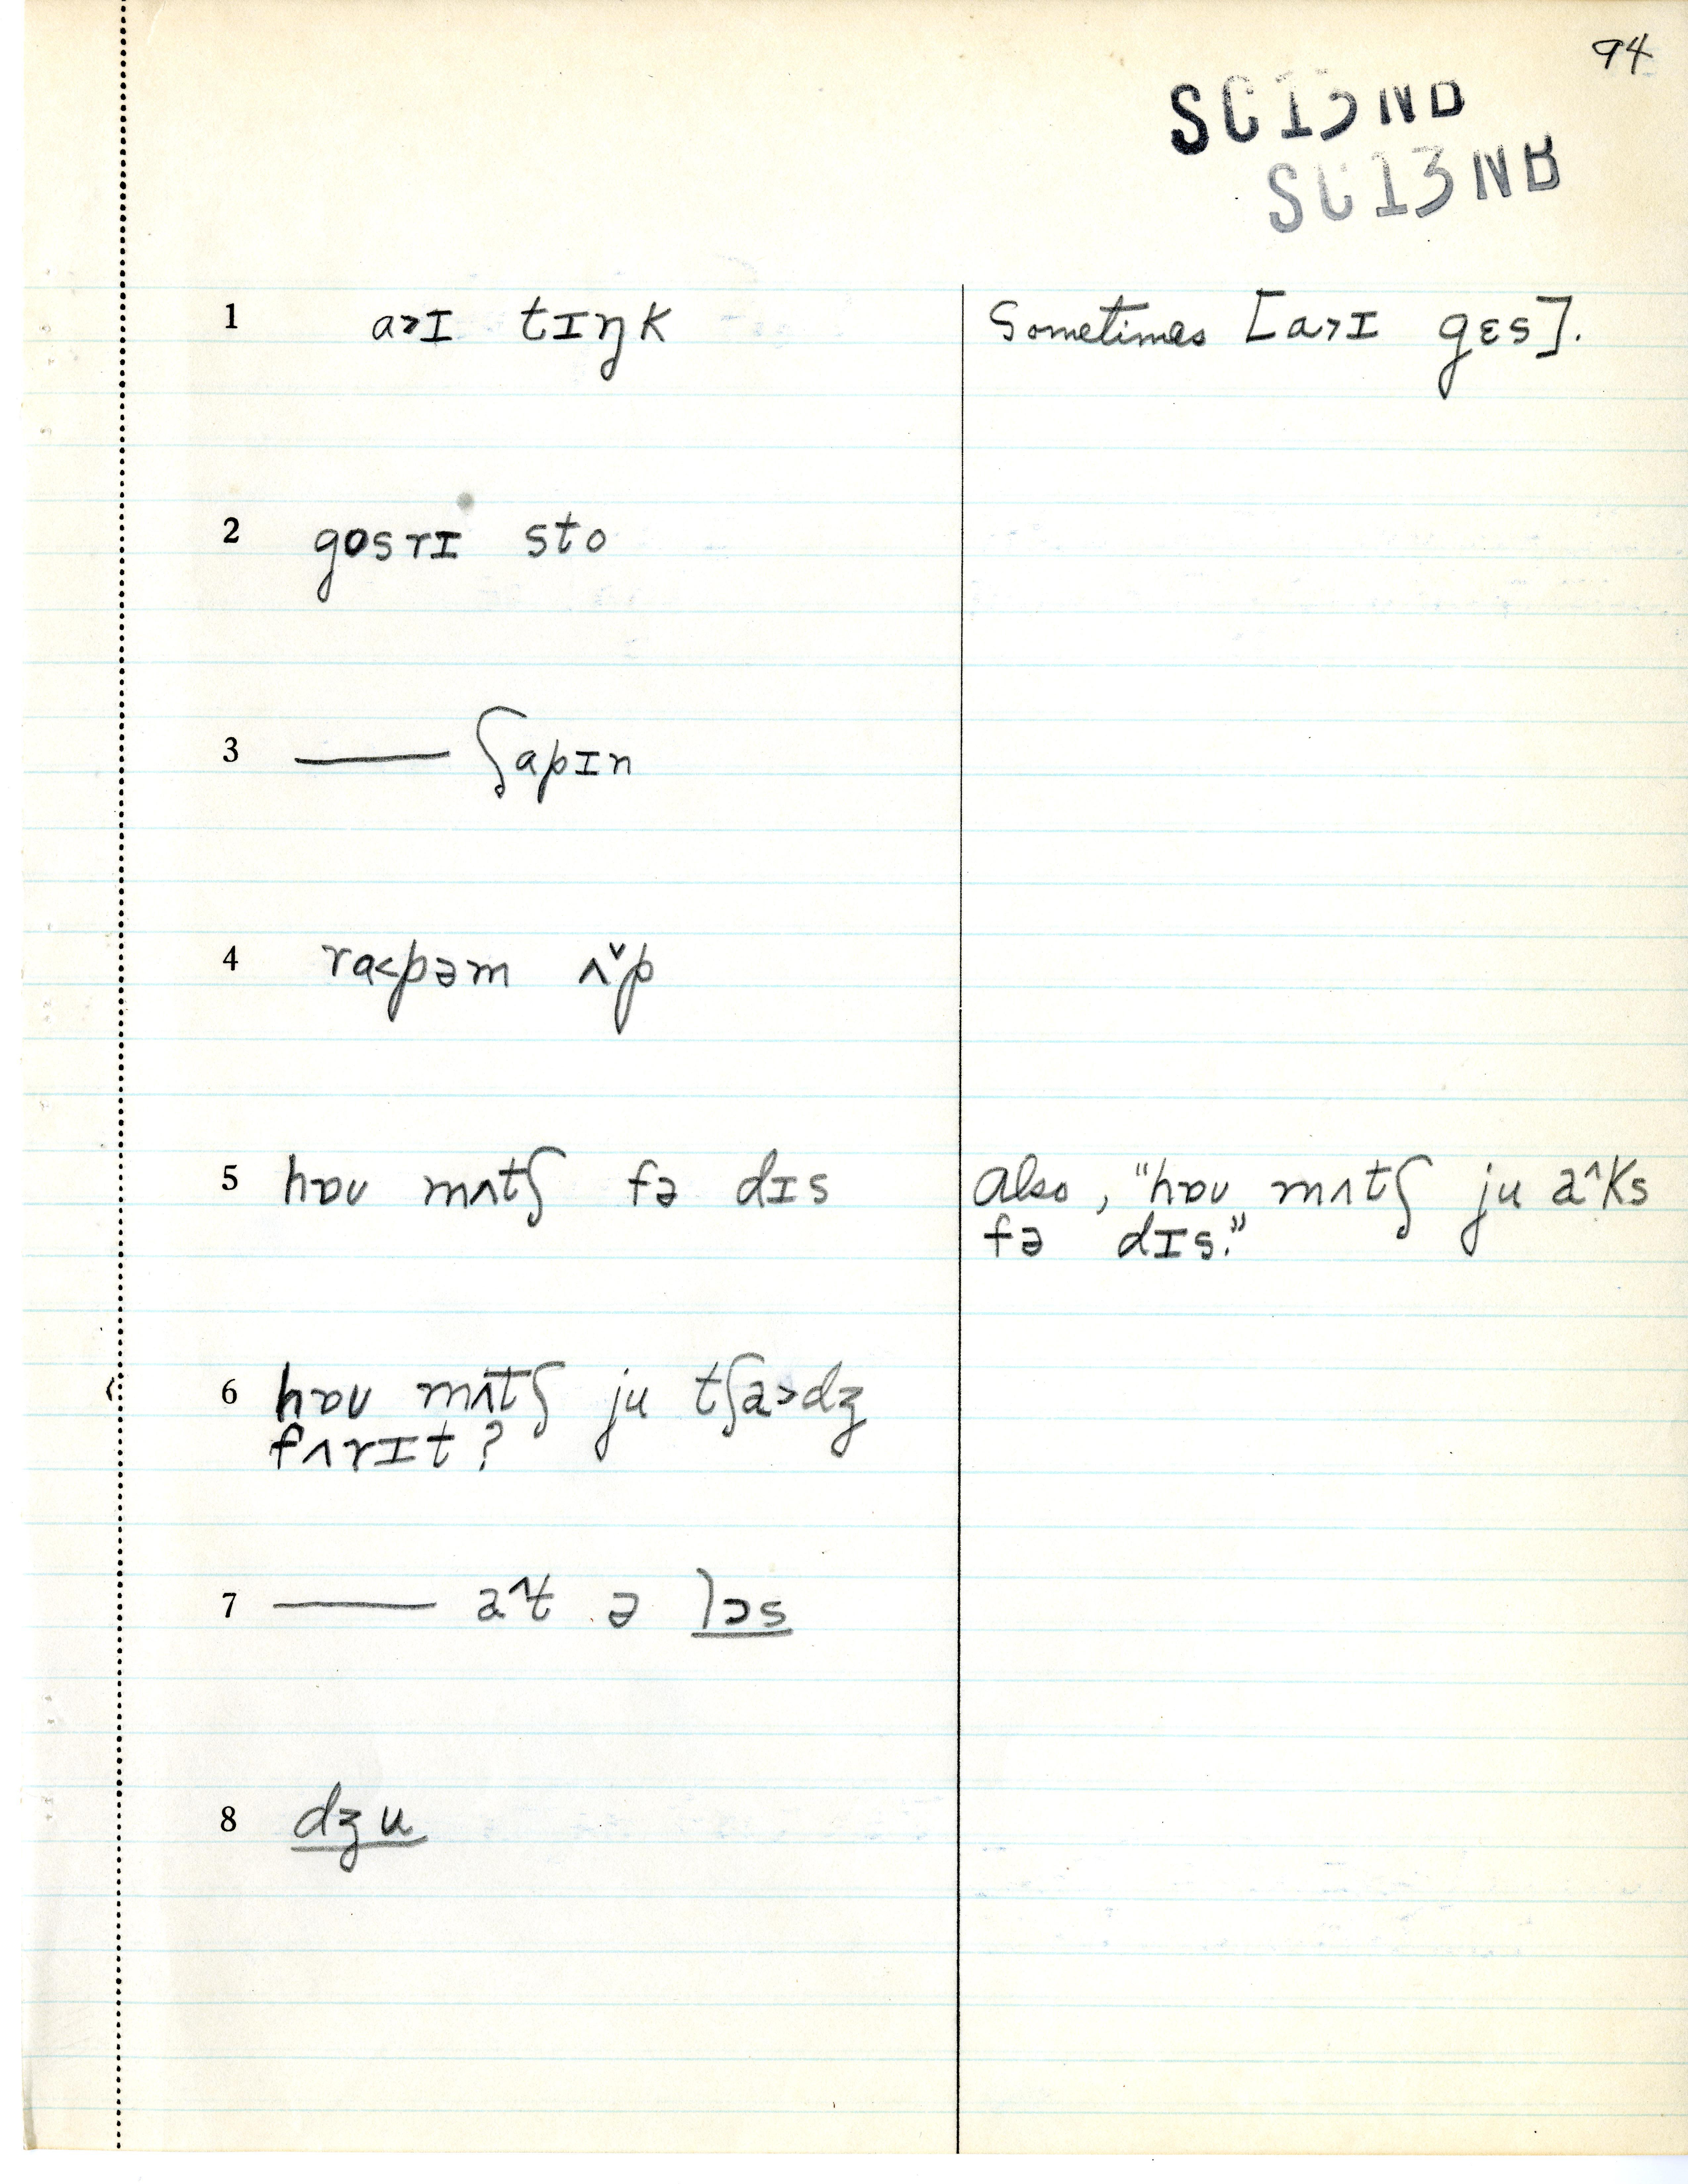 94
SC13NB
SC13NB
1 a>ɪ tɪŋk Sometimes [a>ɪ gɛs].
2 gosrɪ sto
3 —— ʃapɪn
4 ra<pəm ʌ˅p
5 hɒʊ mʌtʃ fə dɪs Also, "hɒʊ mʌtʃ ju a^ks
fə dɪs."
6 hɒʊ mʌtʃ ju tʃa>dʒ
fʌrɪt?
7 —— a^t ə lɔs
8 dʒu